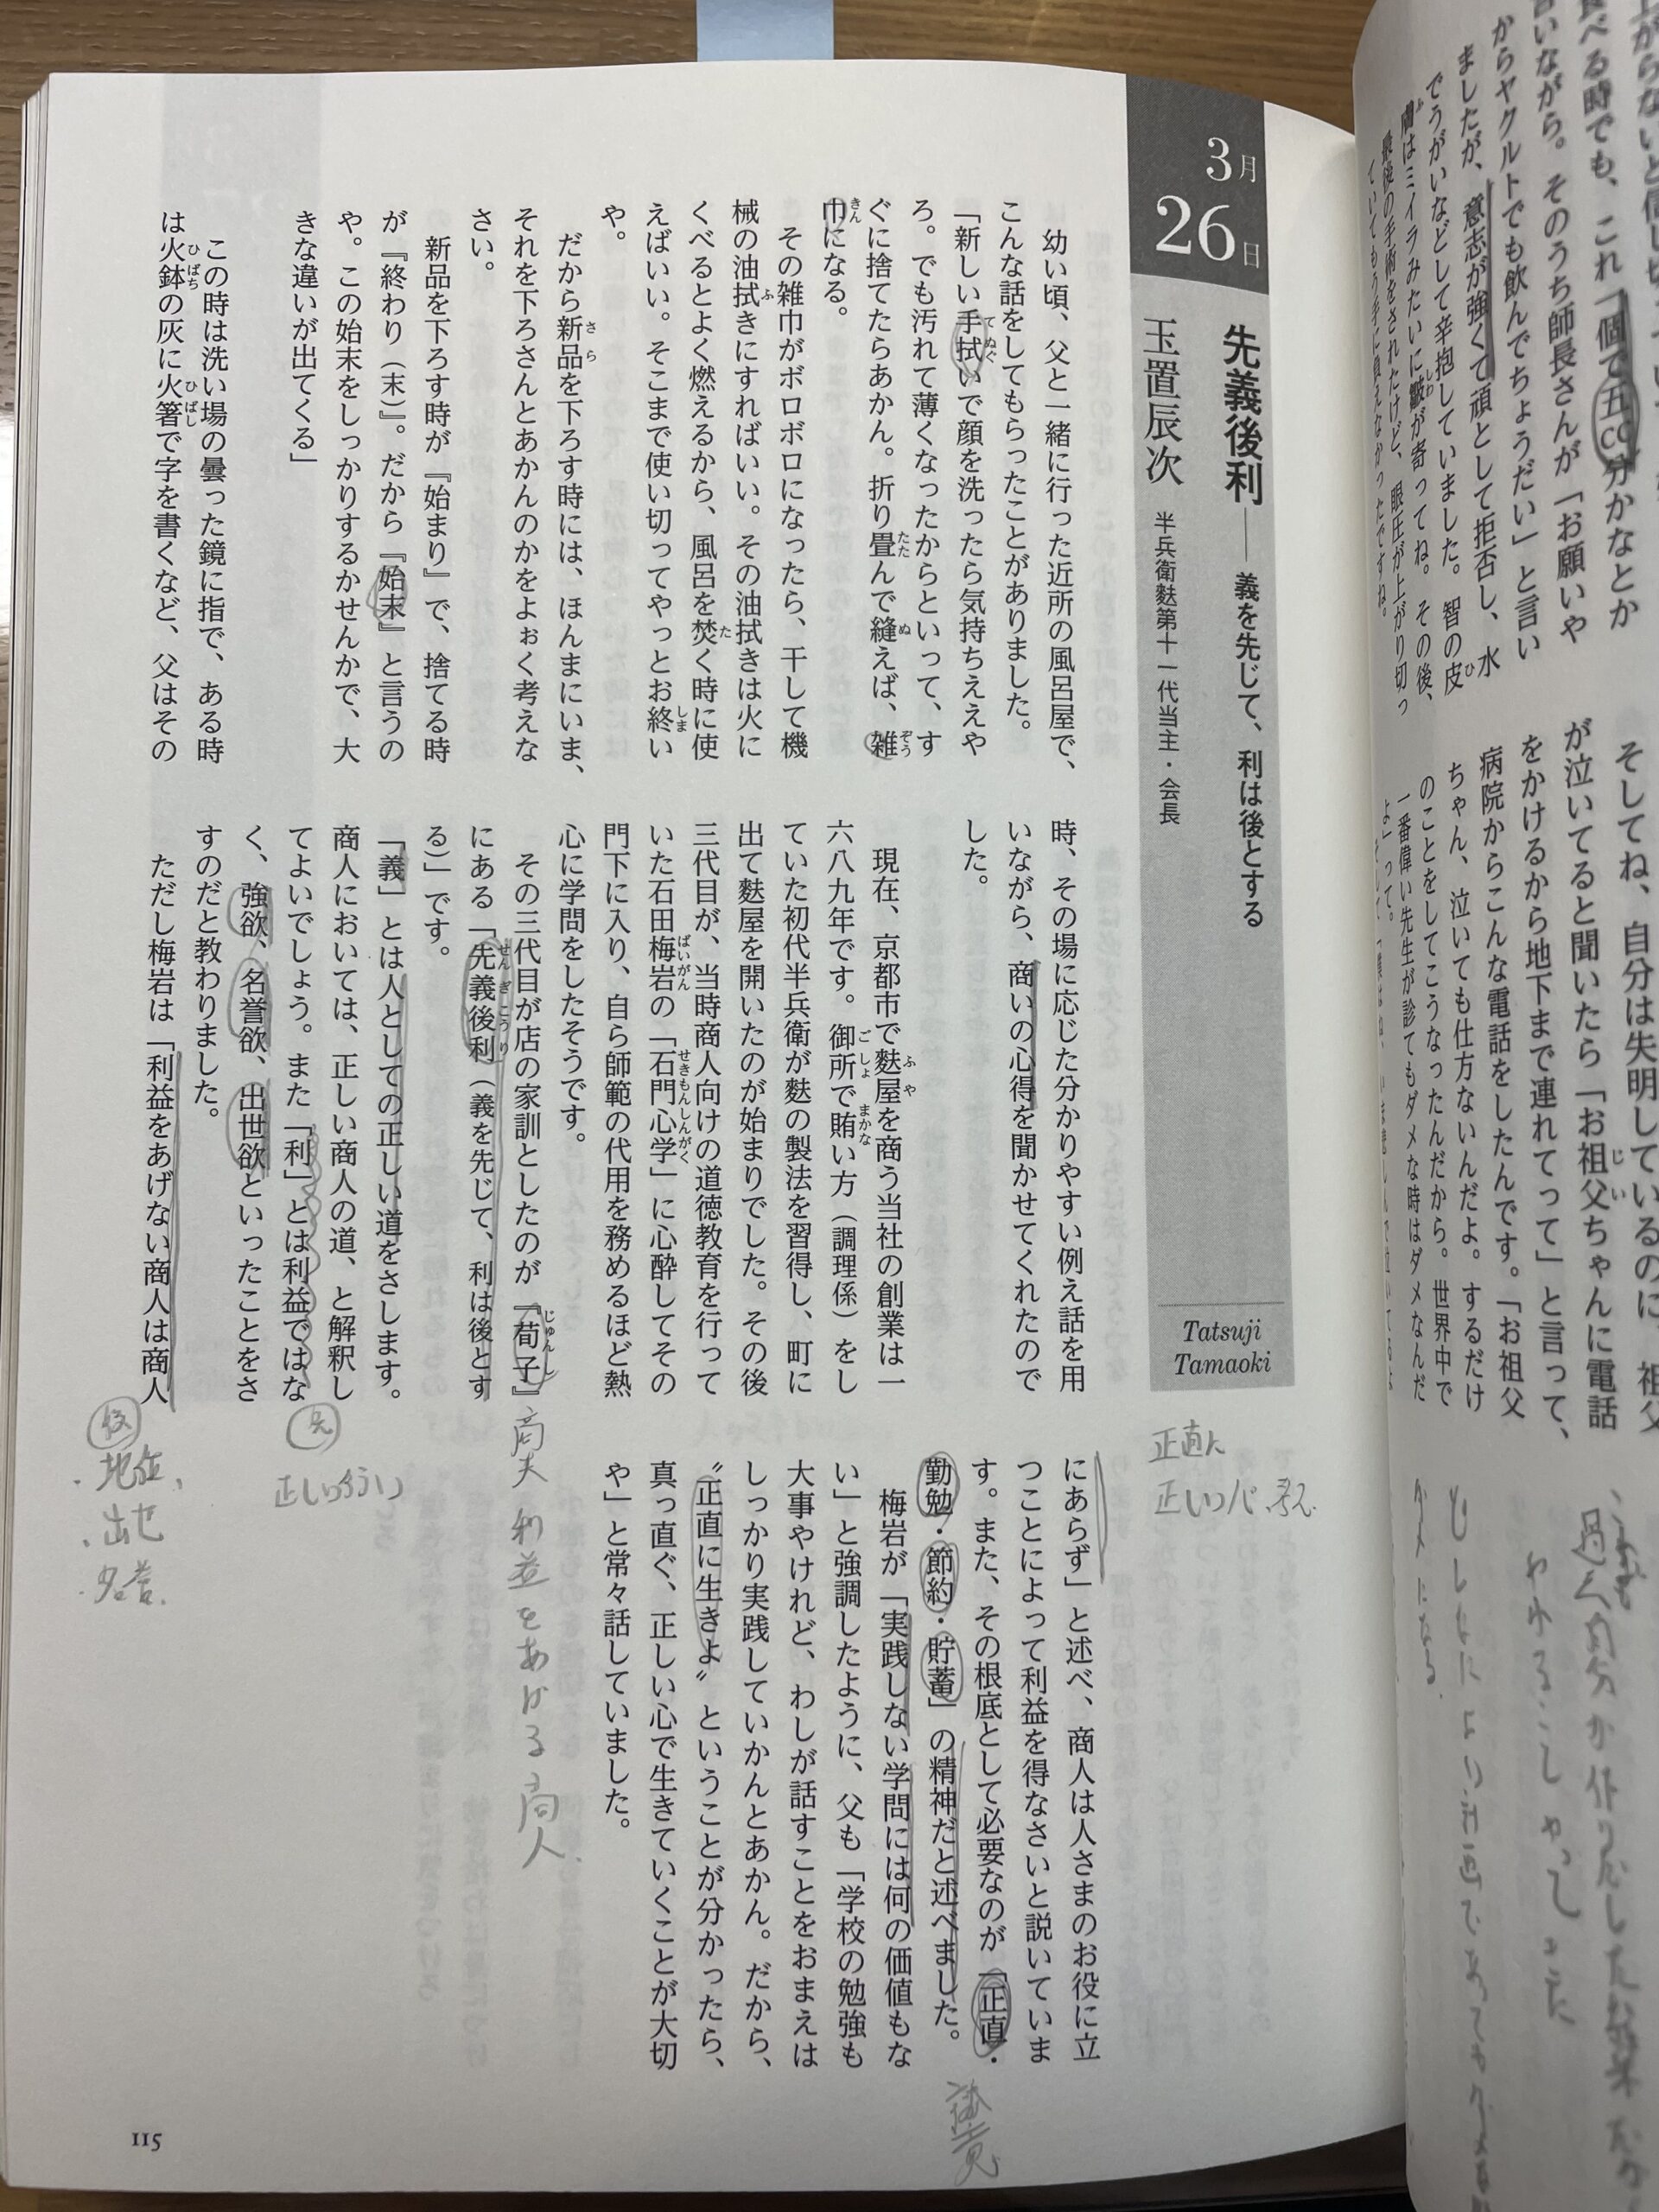 3月
26日
先義後利――義を先じて、利は後とする
玉置辰次 半兵衛麩第十一代当主・会長
Tatsuji
Tamaoki
幼い頃、父と一緒に行った近所の風呂屋で、
こんな話をしてもらったことがありました。
「新しい手拭いで顔を洗ったら気持ちええや
ろ。でも汚れて薄くなったからといって、す
ぐに捨てたらあかん。折り畳んで縫えば、雑
巾になる。
その雑巾がボロボロになったら、干して機
械の油拭きにすればいい。その油拭きは火に
くべるとよく燃えるから、風呂を焚く時に使
えばいい。そこまで使い切ってやっとお終い
や。
だから新品を下ろす時には、ほんまにいま、
それを下ろさんとあかんのかをよぉく考えな
さい。
新品を下ろす時が『始まり』で、捨てる時
が『終わり（末）』。だから『始末』と言うの
や。この始末をしっかりするかせんかで、大
きな違いが出てくる」
この時は洗い場の曇った鏡に指で、ある時
は火鉢の灰に火箸で字を書くなど、父はその
時、その場に応じた分かりやすい例え話を用
いながら、商いの心得を聞かせてくれたので
した。
現在、京都市で麩屋を商う当社の創業は一
六八九年です。御所で賄い方（調理係）をし
ていた初代半兵衛が麩の製法を習得し、町に
出て麩屋を開いたのが始まりでした。その後
三代目が、当時商人向けの道徳教育を行って
いた石田梅岩の「石門心学」に心酔してその
門下に入り、自ら師範の代用を務めるほど熱
心に学問をしたそうです。
その三代目が店の家訓としたのが『荀子』
にある「先義後利（義を先じて、利は後とす
る）」です。
「義」とは人としての正しい道をさします。
商人においては、正しい商人の道、と解釈し
てよいでしょう。また「利」とは利益ではな
く、強欲、名誉欲、出世欲といったことをさ
すのだと教わりました。
ただし梅岩は「利益をあげない商人は商人
にあらず」と述べ、商人は人さまのお役に立
つことによって利益を得なさいと説いていま
す。また、その根底として必要なのが「正直・
勤勉・節約・貯蓄」の精神だと述べました。
梅岩が「実践しない学問には何の価値もな
い」と強調したように、父も「学校の勉強も
大事やけれど、わしが話すことをおまえは
しっかり実践していかんとあかん。だから、
〝正直に生きよ〟ということが分かったら、
真っ直ぐ、正しい心で生きていくことが大切
や」と常々話していました。
正直に
利益をあげる商人
先
正しい行い
後
・地位、
・出世
・名誉
115
からヤクルトでも飲んでちょうだい」と言い
ましたが、意志が強くて頑として拒否し、水
でうがいなどして辛抱していました。智の皮
膚はミイラみたいに皺が寄ってね。その後、
最後の手術をされたけど、眼圧が上がり切っ
ていてもう手に負えなかったですね。
が泣いてると聞いたら「お祖父ちゃんに電話
をかけるから地下まで連れてって」と言って、
病院からこんな電話をしたんです。「お祖父
ちゃん、泣いても仕方ないんだよ。するだけ
のことをしてこうなったんだから。世界中で
一番偉い先生が診てもダメな時はダメなんだ
よ」って。